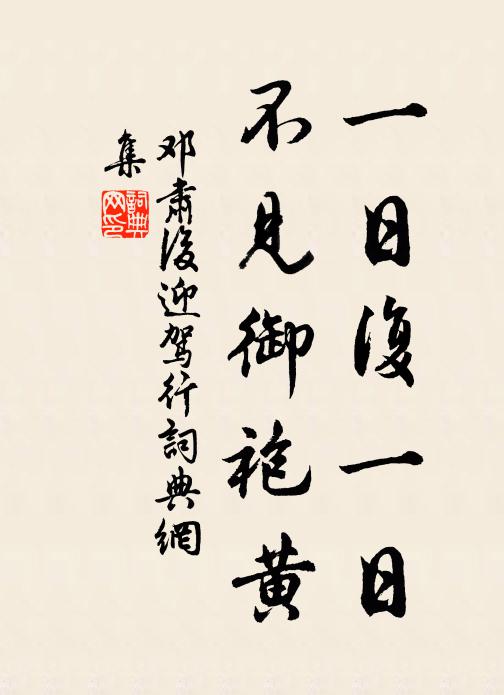 一日復一日
不見御袍黃
邓肅後迎駕行詞典網
集
詞典
网印